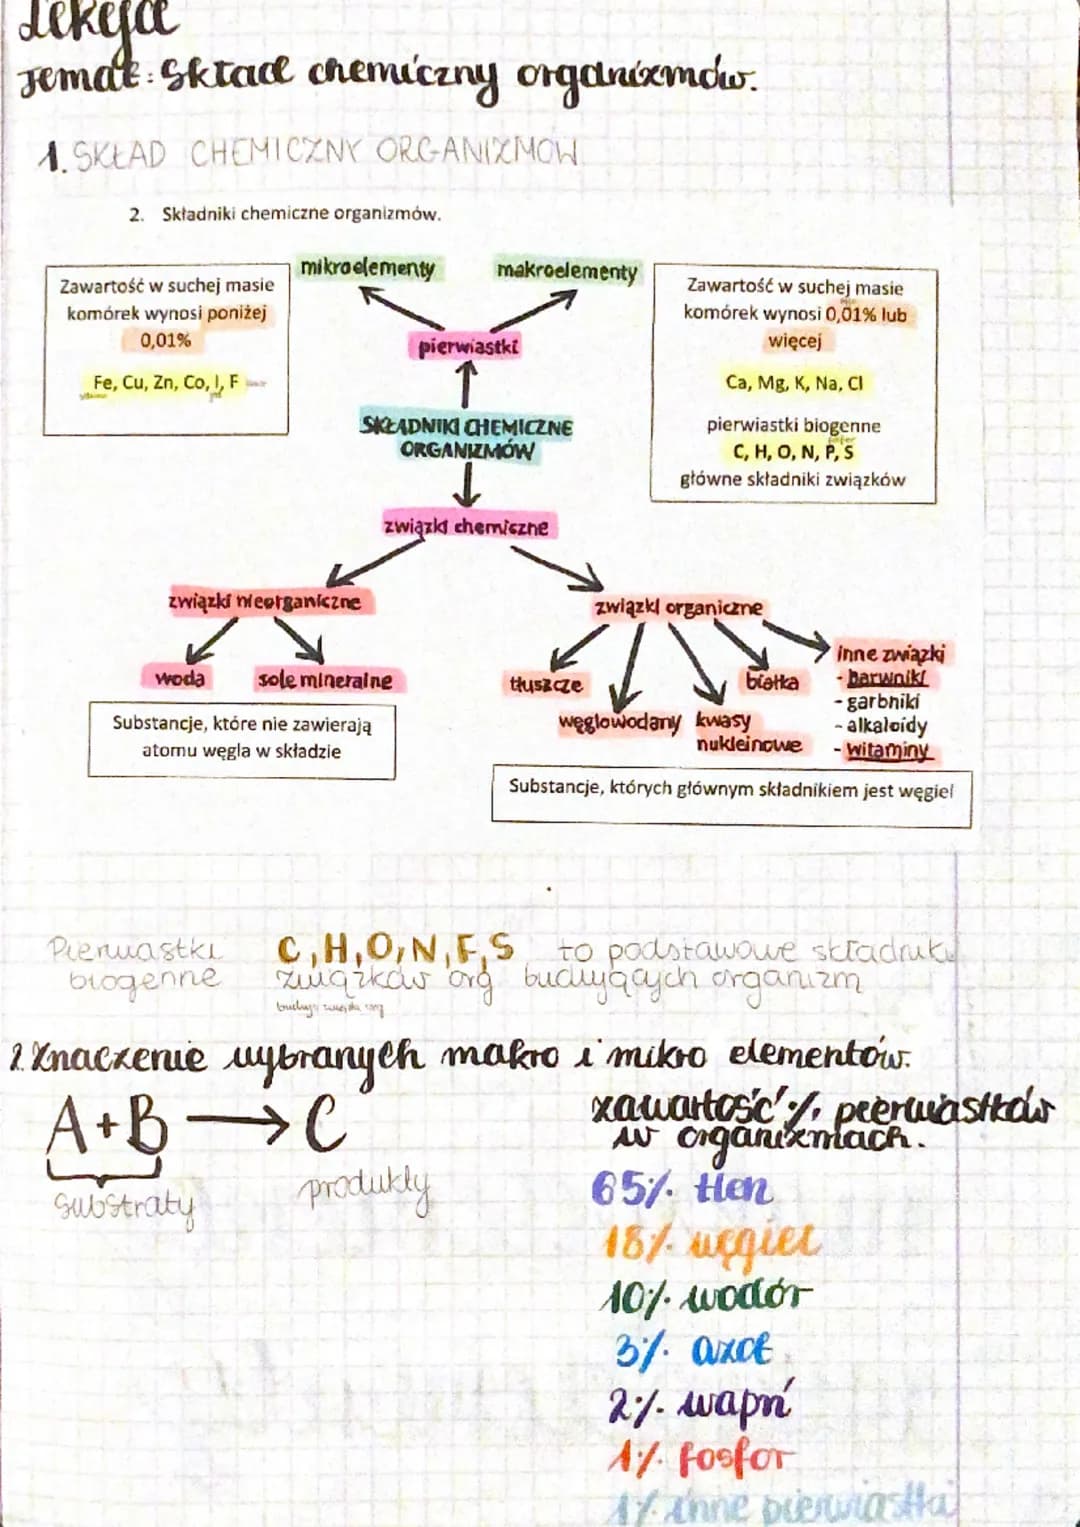 Lekcja
Temat: Skład chemiczny organizmów.
1. SKŁAD CHEMICZNY ORGANIZMÓW
2. Składniki chemiczne organizmów.
mikroelementy
makroelementy
Zawartość w suchej masie
komórek wynosi poniżej
0,01%
Fe, Cu, Zn, Co, I, F
Zawartość w suchej masie
komórek wynosi 0,01% lub
więcej
Ca, Mg, K, Na, Cl
pierwiastki biogenne
fosfor
C, H, O, N, P, S
główne składniki związków
pierwiastki
SKŁADNIKI CHEMICZNE
ORGANIZMÓW
związki chemiczne
związki nieorganiczne
woda
sole mineralne
Substancje, które nie zawierają
atomu węgla w składzie
związki organiczne
tłuszcze
węglowodany
kwasy
nukleinowe
białka
inne związki
- barwniki
- garbniki
- alkaloidy
- witaminy
Substancje, których głównym składnikiem jest węgiel
Pierwiastki
biogenne
C, H, O, N, F, S to podstawowe składniki
związków org budujących organizm
2. Znaczenie wybranych makro i mikro elementów.
A + B → C
substraty
produkty
zawartość % pierwiastków
w organizmach.
65% tlen
18% węgiel
10% wodór
3% azot
2% wapń
1% fosfor
1% inne pierwiastki